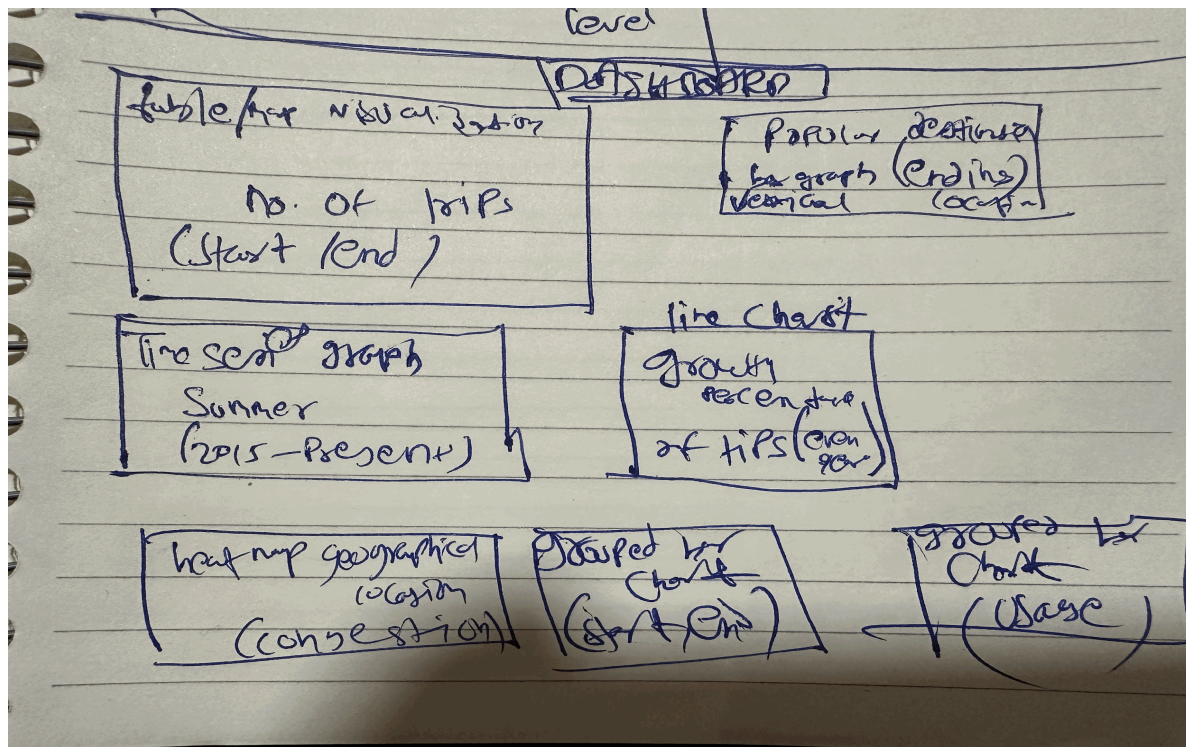 level
DASHBOARD
table/map visualization
no. of trips
(start/end)
Popular destination
bar graph (ending)
vertical location
line graph
Summer
(2015-Present)
line chart
growth
percentage
of tips (even
year)
heat map geographical
location
(congestion)
grouped bar
chart
(start, end)
grouped bar
chart
(usage)